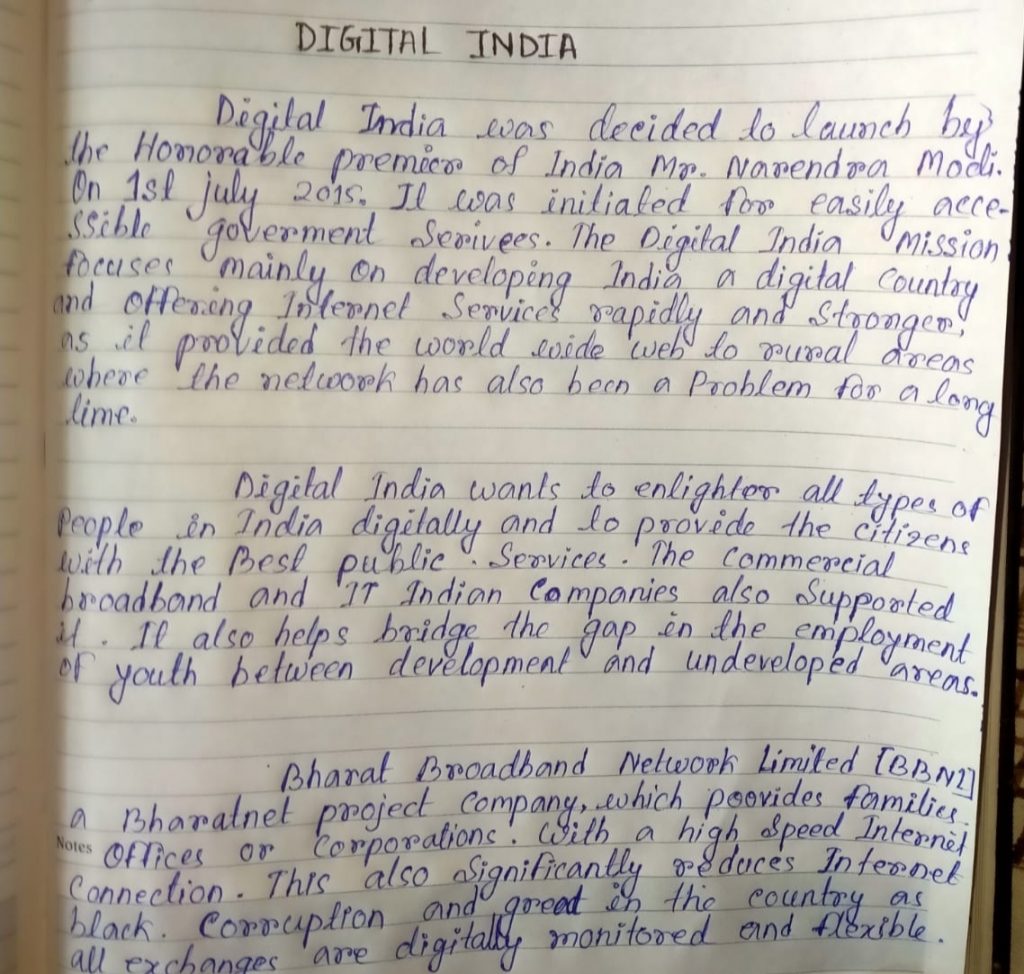 DIGITAL INDIA
Digital India was decided to launch by
the Honorable premier of India Mr. Narendra Modi.
On 1st july 2015. It was initiated for easily acce-
ssible goverment Serivees. The Digital India Mission
focuses mainly on developing India a digital country
and offering Internet Services rapidly and Stronger,
as it provided the world wide web to rural areas
where the network has also been a Problem for a long
time.
Digital India wants to enlighter all types of
People in India digitally and to provide the citizens
with the Best public. Services. The Commercial
broadband and IT Indian Companies also Supported
it. It also helps bridge the gap in the employment
of youth between development and undeveloped areas.
Bharat Broadband Network Limited [BBN1]
a Bharatnet project Company, which peovides families.
Notes Offices or Corporations. With a high Speed Internet
Connection. This also Significantly reduces Internet
black. Corruption and great in the country as
all exchanges are digitally monitored and flexible.